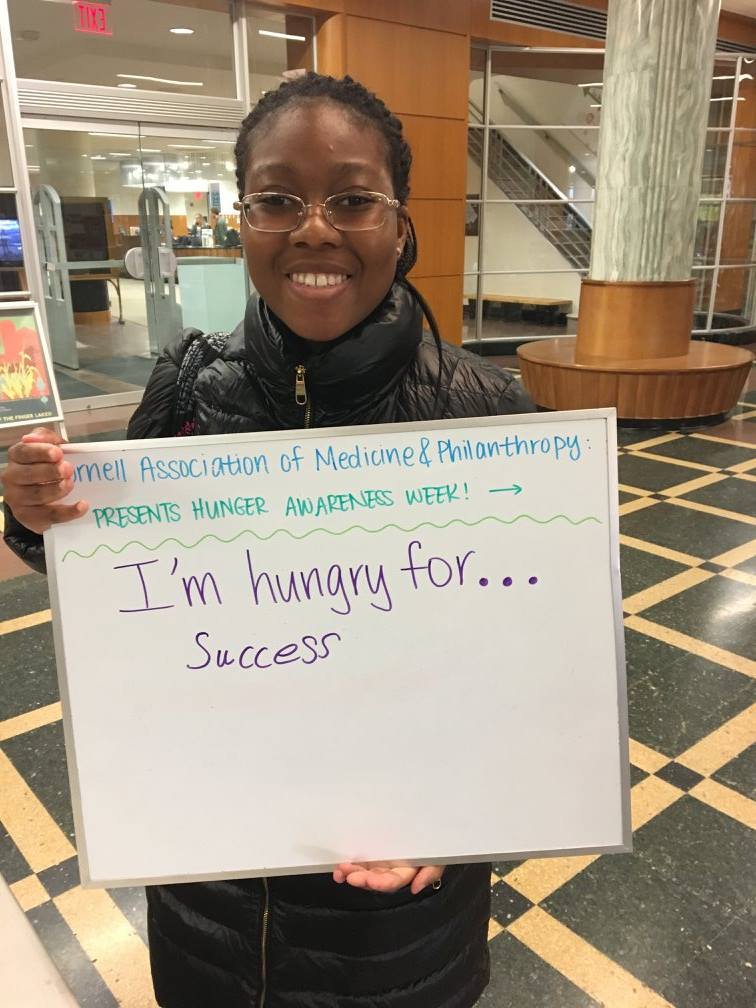 EXIT
ornell Association of Medicine & Philanthropy:
PRESENTS HUNGER AWARENESS WEEK! →
I'm hungry for...
Success
THE FINGER LAKES